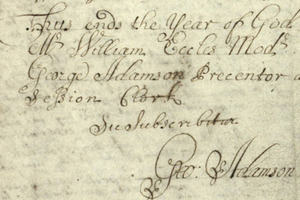 Thus ends the Year of God
Mr William Eccles Modr
George Adamson Precentor &
Session Clerk
Sic Subscribitur
Geo: Adamson